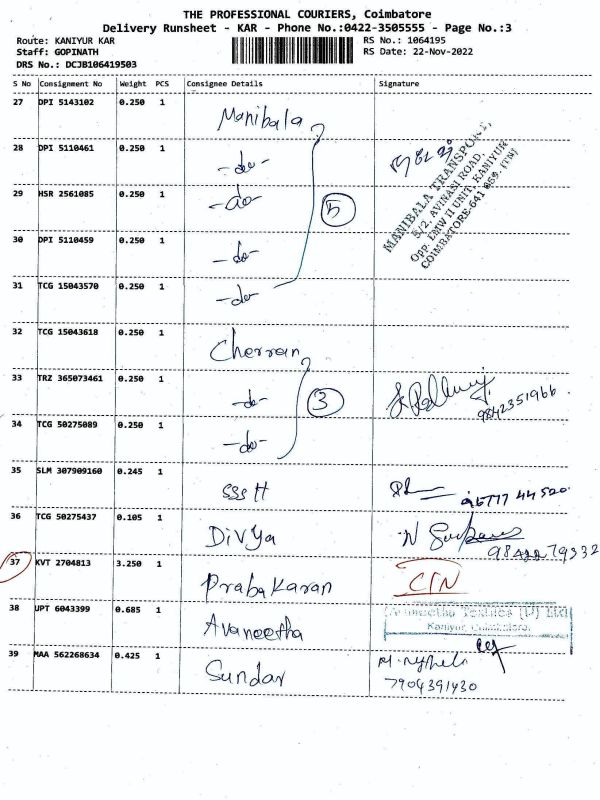 THE PROFESSIONAL COURIERS, Coimbatore
Delivery Runsheet - KAR - Phone No.:0422-3505555 - Page No.:3
Route: KANIYUR KAR RS No.: 1064195
Staff: GOPINATH RS Date: 22-Nov-2022
DRS No.: DCJB106419503
S No Consignment No Weight PCS Consignee Details Signature
27 DPI 5143102 0.250 1 Manibala
28 DPI 5110461 0.250 1 -do-
29 HSR 2561085 0.250 1 -do- 5
30 DPI 5110459 0.250 1 -do-
31 TCG 15043570 0.250 1 -do-
MANIBALA TRANSPORT,
5/2, AVINASI ROAD,
OPP. LMW II UNIT, KANIYUR
COIMBATORE-641 659. (TN)
32 TCG 15043618 0.250 1 Cherran
33 TRZ 365073461 0.250 1 -do- 3 9842351966
34 TCG 50275089 0.250 1 -do-
35 SLM 307909160 0.245 1 SSS H 96777 44520
36 TCG 50275437 0.105 1 Divya
37 KVT 2704813 3.250 1 Prabakaran C/N
38 UPT 6043399 0.685 1 Avaneetha
Kaniyur, Coimbatore.
39 MAA 562268634 0.425 1 Sundar
7904391430